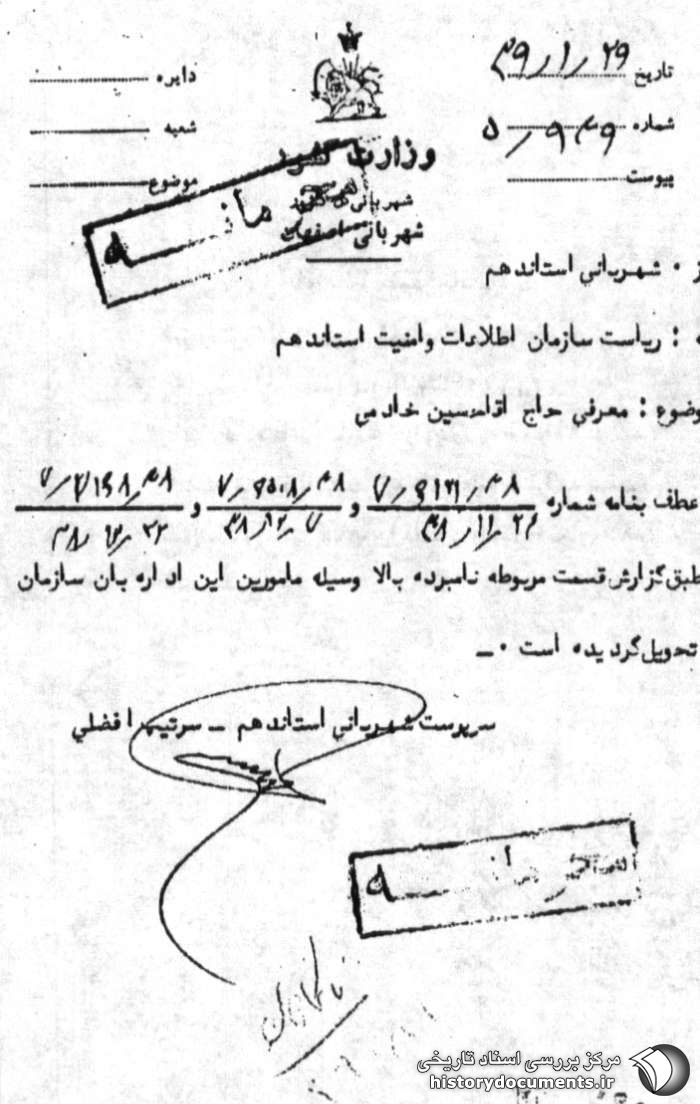 تاریخ ۴۹/۱/۲۹
شماره
پیوست
دایره
شعبه
موضوع
وزارت کشور
شهربانی کل کشور
شهربانی اصفهان
محرمانه
شهربانی استاندهم
: ریاست سازمان اطلاعات وامنیت استاندهم
وضوع : معرفی حاج اقاحسین خادمی
عطف بنامه شماره و و
طبق گزارش قسمت مربوطه نامبرده بالا وسیله مامورین این اداره بان سازمان
تحویل گردیده است ۰ـ
سرپرست شهربانی استاندهم ـ سرتیپ افضلی
محرمانه
مرکز بررسی اسناد تاریخی
historydocuments.ir